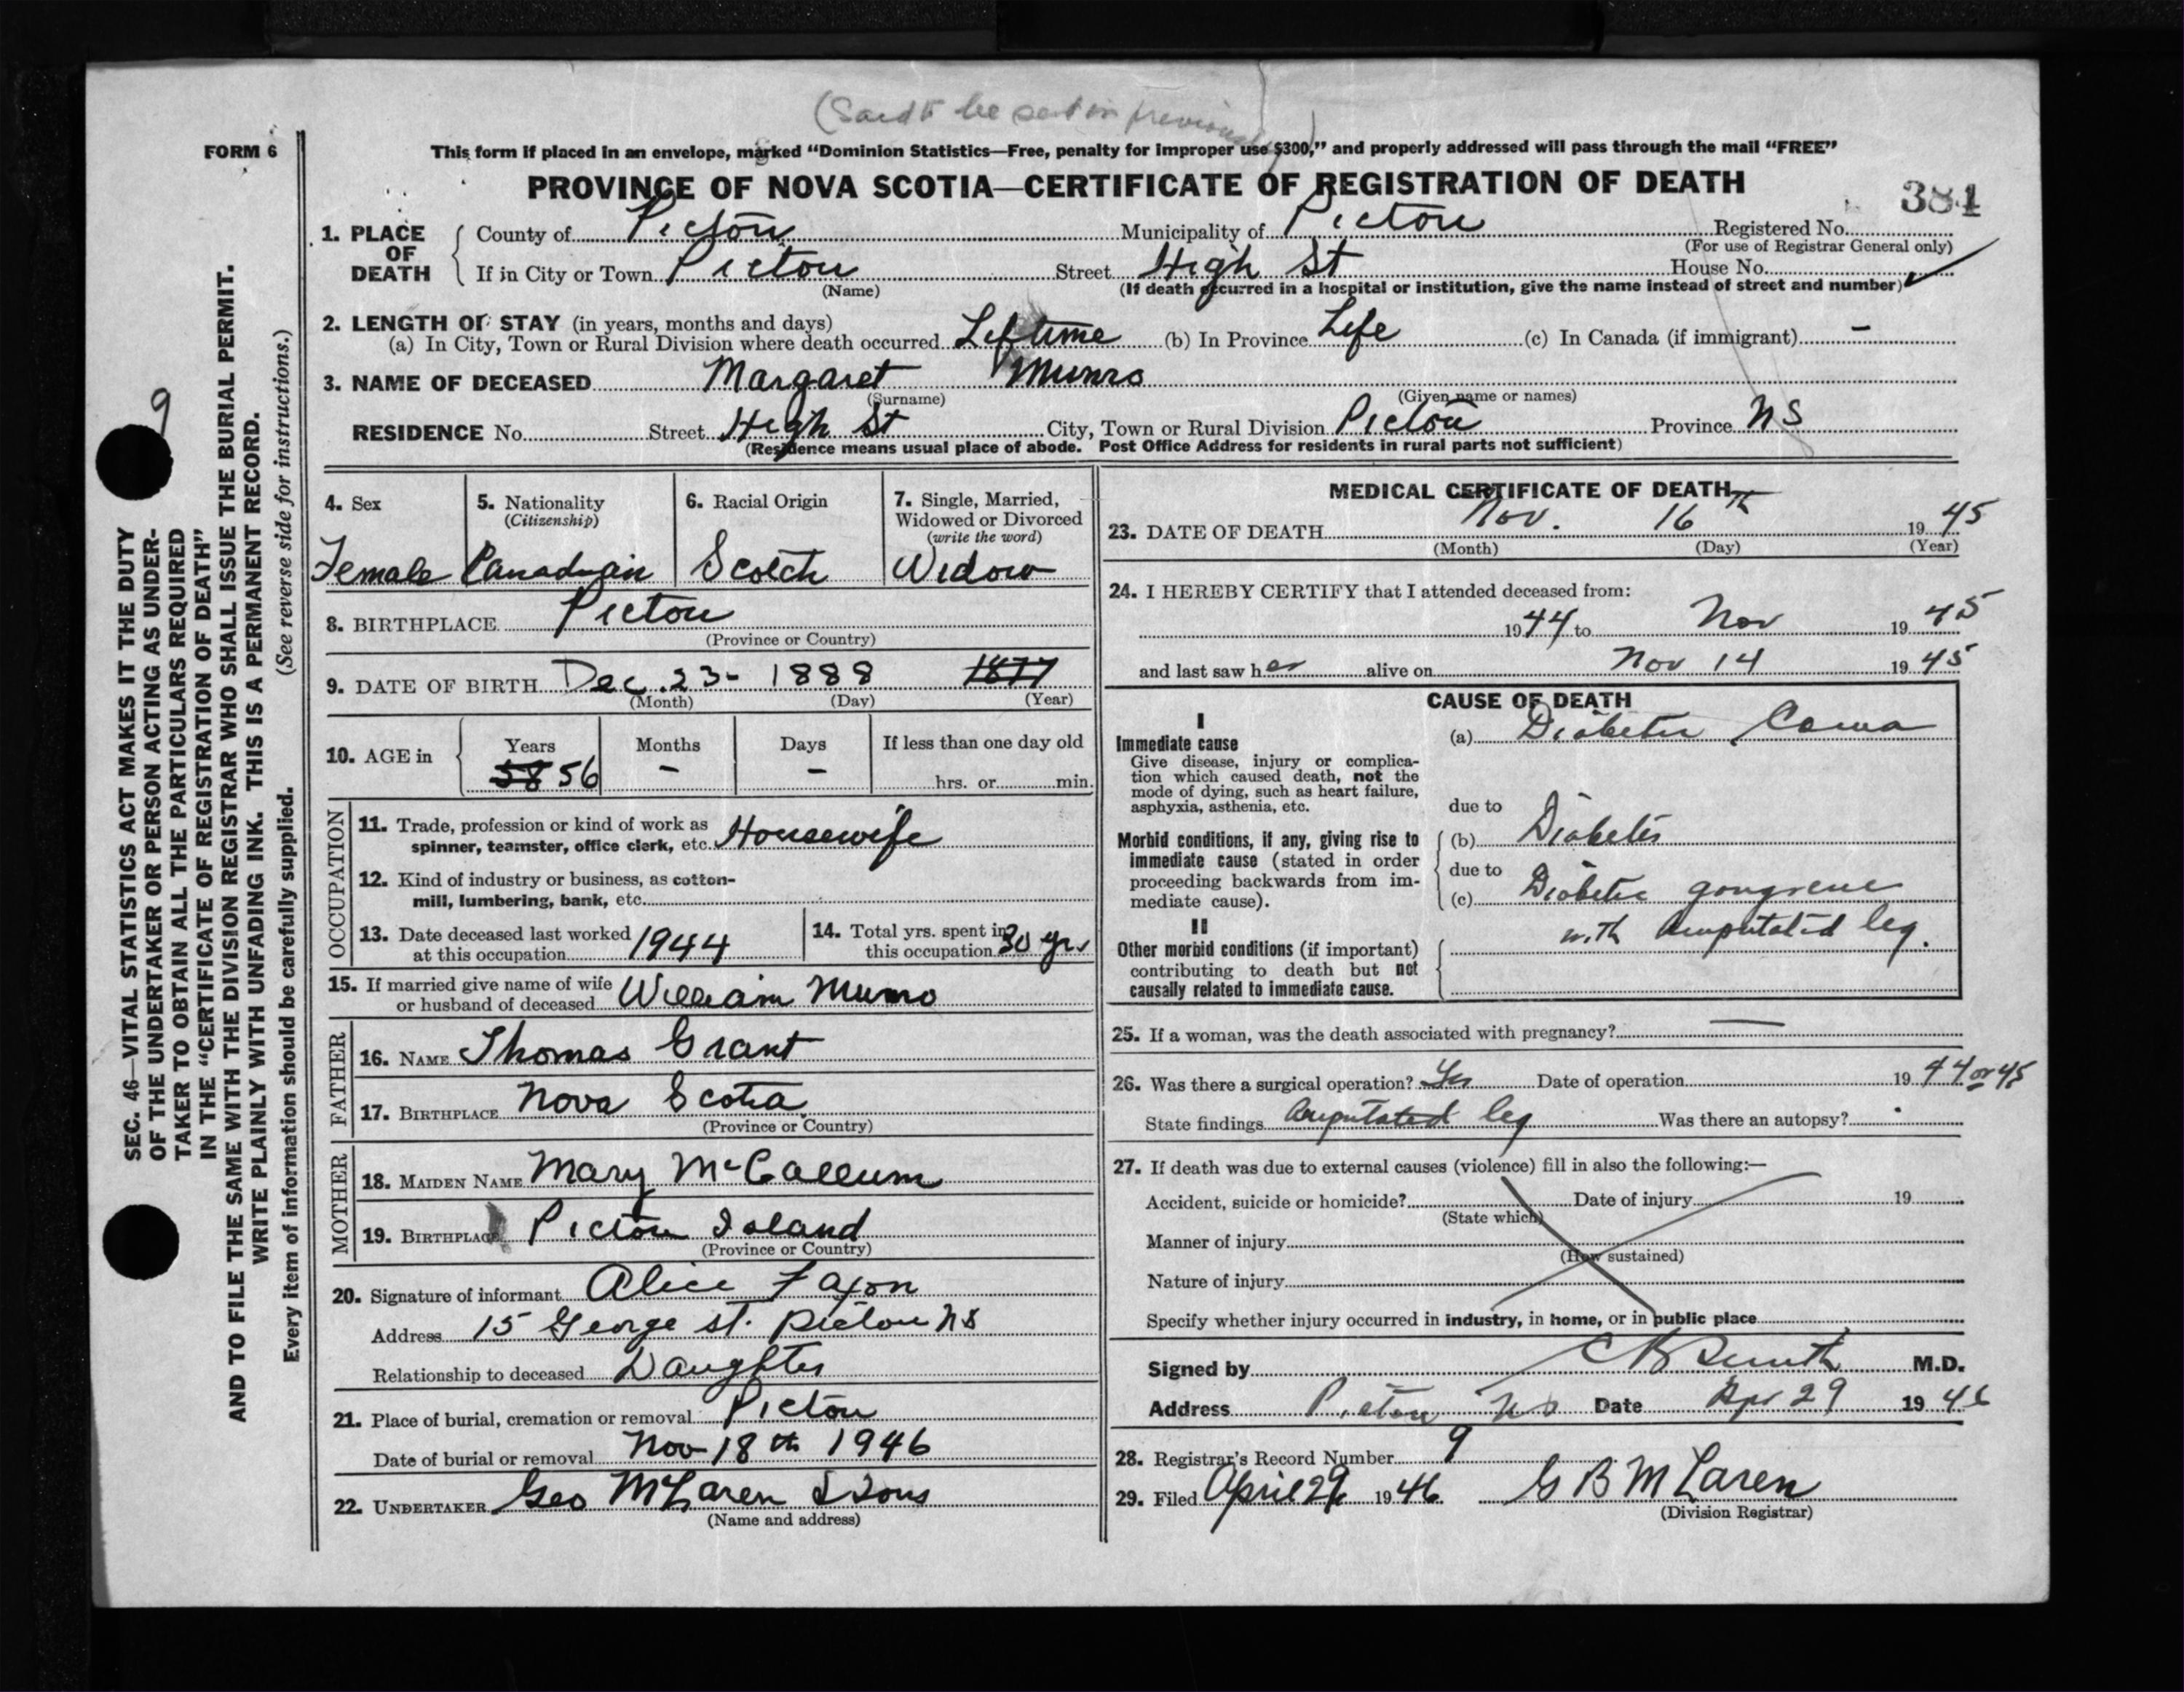 (Said to be sent in previously)
FORM 6
This form if placed in an envelope, marked “Dominion Statistics—Free, penalty for improper use $300,” and properly addressed will pass through the mail “FREE”
PROVINCE OF NOVA SCOTIA—CERTIFICATE OF REGISTRATION OF DEATH
384
1. PLACE OF DEATH
County of Pictou Municipality of Pictou Registered No.
(For use of Registrar General only)
If in City or Town Pictou Street High St House No.
(Name) (If death occurred in a hospital or institution, give the name instead of street and number)
2. LENGTH OF STAY (in years, months and days)
(a) In City, Town or Rural Division where death occurred Liftime (b) In Province Life (c) In Canada (if immigrant) –
3. NAME OF DECEASED Margaret Munro
(Surname) (Given name or names)
RESIDENCE No. Street High St City, Town or Rural Division Pictou Province NS
(Residence means usual place of abode. Post Office Address for residents in rural parts not sufficient)
4. Sex
Female
5. Nationality
(Citizenship)
Canadian
6. Racial Origin
Scotch
7. Single, Married,
Widowed or Divorced
(write the word)
Widow
8. BIRTHPLACE Pictou
(Province or Country)
9. DATE OF BIRTH Dec. 23- 1888 1877
(Month) (Day) (Year)
10. AGE in
Years Months Days If less than one day old
58 56 – – hrs. or min.
OCCUPATION
11. Trade, profession or kind of work as
spinner, teamster, office clerk, etc. Housewife
12. Kind of industry or business, as cotton-
mill, lumbering, bank, etc.
13. Date deceased last worked
at this occupation 1944
14. Total yrs. spent in
this occupation 30 yrs
15. If married give name of wife
or husband of deceased William Munro
FATHER
16. NAME Thomas Grant
17. BIRTHPLACE Nova Scotia
(Province or Country)
MOTHER
18. MAIDEN NAME Mary McCallum
19. BIRTHPLACE Pictou Island
(Province or Country)
20. Signature of informant Alice Faxon
Address 15 George st. Pictou NS
Relationship to deceased Daughter
21. Place of burial, cremation or removal Pictou
Date of burial or removal Nov 18th 1946
22. UNDERTAKER Geo McLaren & Sons
(Name and address)
MEDICAL CERTIFICATE OF DEATH
23. DATE OF DEATH Nov. 16th 1945
(Month) (Day) (Year)
24. I HEREBY CERTIFY that I attended deceased from:
1944 to Nov 1945
and last saw her alive on Nov 14 1945
CAUSE OF DEATH
I
Immediate cause
Give disease, injury or complica-
tion which caused death, not the
mode of dying, such as heart failure,
asphyxia, asthenia, etc.
(a) Diabetic Coma
due to
Morbid conditions, if any, giving rise to
immediate cause (stated in order
proceeding backwards from im-
mediate cause).
(b) Diabetes
due to
(c) Diabetic gangrene
with Amputated leg.
II
Other morbid conditions (if important)
contributing to death but not
causally related to immediate cause.
25. If a woman, was the death associated with pregnancy? —
26. Was there a surgical operation? Yes Date of operation 1944 or 45
State findings Amputated leg Was there an autopsy?
27. If death was due to external causes (violence) fill in also the following:—
Accident, suicide or homicide? Date of injury 19
(State which)
Manner of injury
(How sustained)
Nature of injury
Specify whether injury occurred in industry, in home, or in public place
Signed by C B Smith M.D.
Address Pictou NS Date Apr 29 1946
28. Registrar's Record Number 9
29. Filed April 29 1946 G B McLaren
(Division Registrar)
9
SEC. 46—VITAL STATISTICS ACT MAKES IT THE DUTY
OF THE UNDERTAKER OR PERSON ACTING AS UNDER-
TAKER TO OBTAIN ALL THE PARTICULARS REQUIRED
IN THE “CERTIFICATE OF REGISTRATION OF DEATH”
AND TO FILE THE SAME WITH THE DIVISION REGISTRAR WHO SHALL ISSUE THE BURIAL PERMIT.
WRITE PLAINLY WITH UNFADING INK. THIS IS A PERMANENT RECORD.
Every item of information should be carefully supplied. (See reverse side for instructions.)